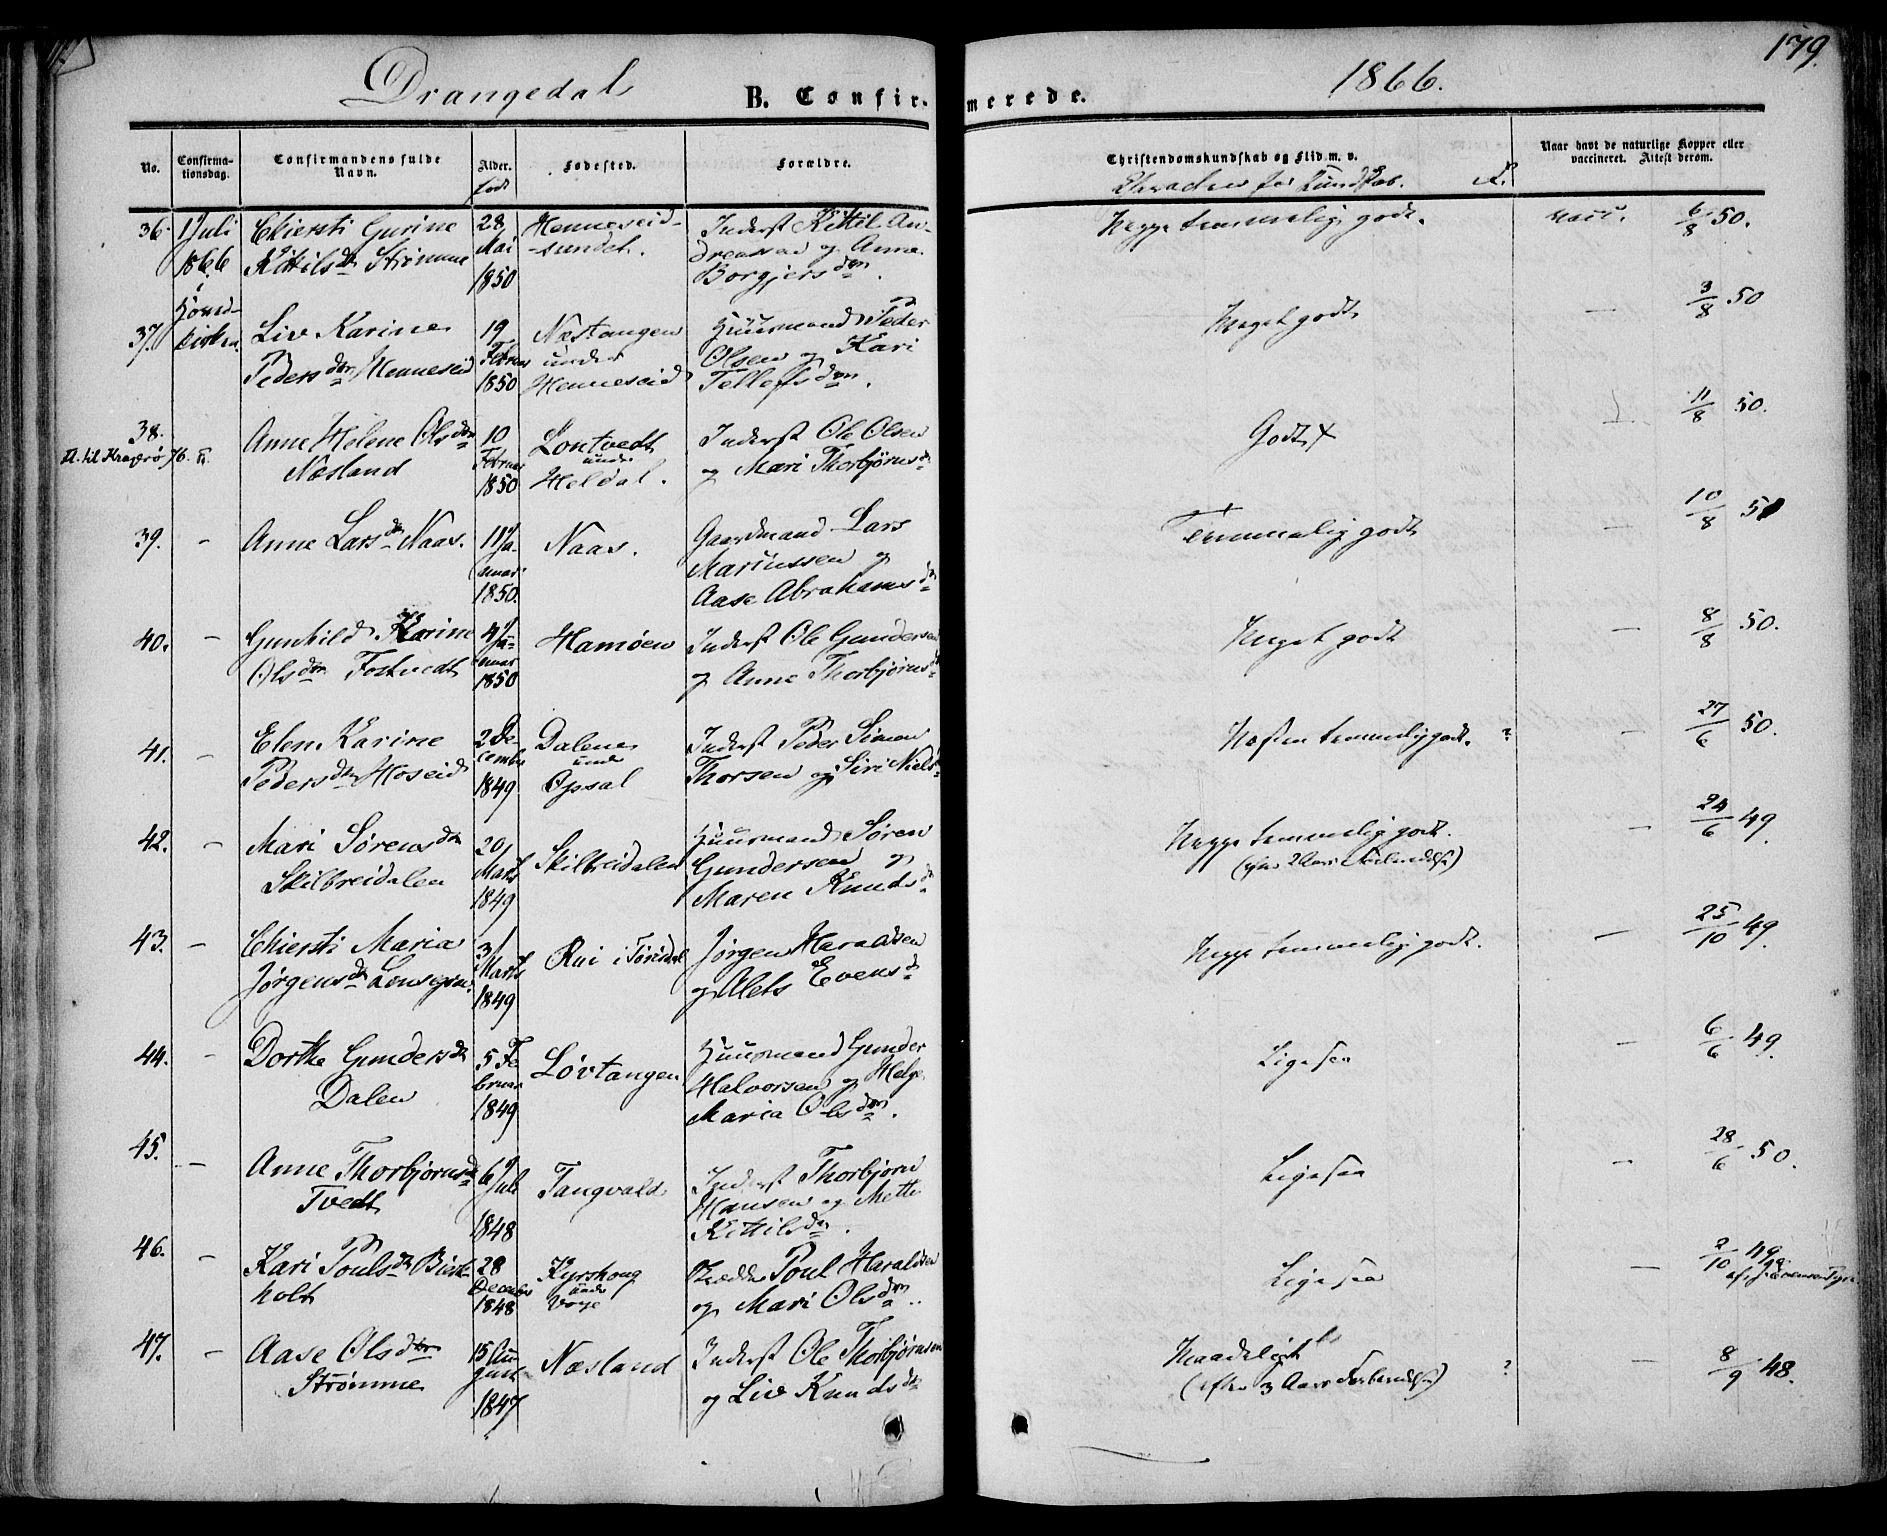 179.
Drangedal
1866.
B. Confirmerede.
No.
Confirmationsdag.
Confirmandens fulde Navn.
Alder.
født
Fødested.
Forældre.
Christendomskundskab og Flid m. v.
Naar havt de naturlige Kopper eller vaccineret. Attest derom.
36. 1 Juli 1866 i
Chiersti Gurine
Kittilsdtr Strømme
28 Mai 1850
Henneseid-
sundet.
Inderst Kittil An-
dreassen og Anne
Borgjersdtr.
Neppe temmelig godt.
6/8 50.
37.
Liv Karine
Pedersdtr Henneseid
19 Februar 1850
Næstangen
under
Henneseid
Huusmand Peder
Olsen og Kari
Tellefsdtr.
Meget godt
3/8 50
38.
Fl. til Kragerø 76.
Anne Helene Olsdtr
Næsland
10 Februar 1850
under
Heldal.
Inderst Ole Olsen
og Mari Thorbjørnsdtr
Godt
11/8 50.
39. -
Anne Larsdtr Naas.
11 Januar 1850.
Naas.
Gaardmand Lars
Mariussen og
Aase Abrahamsdtr
Temmelig godt
-
10/8 50
40. -
Gunhild Karine
Olsdtr Tostvedt
4 Januar 1850
Hamøen
Inderst Ole Gundersen
og Anne Thorbjørnsdtr
Meget godt
-
8/8 50.
41. -
Elen Karine
Pedersdtr Hoseid
2 December 1849
Dalene
under
Opsal
Inderst Peder Simon
Thorsen og Siri Nielsdtr
Næsten temmelig godt. ?
-
27/6 50.
42. -
Mari Sørensdtr
Skilbreidalen
20 Marts 1849
Skilbreidalen
Huusmand Søren
Gundersen og
Maren Knudsdtr
Neppe temmelig godt.
(efter 2 Aars Forberedelse)
-
24/6 49.
43. -
Chiersti Maria
Jørgensdtr
31 Marts 1849
Rui i Tørisdal
Jørgen Haraldsen
og Alets Evensdtr
Neppe temmelig godt.
-
25/10 49.
44. -
Dorthe Gundersdtr
Dalen
5 Februar 1849
Løvtangen
Huusmand Gunder
Halvorsen og Helge
Maria Olsdtr.
Ligesaa
-
6/6 49.
45. -
Anne Thorbjørnsdtr
Tvedt
6 Juli 1848
Tangvald
Inderst Thorbjørn
Hansen og Mette
Kittilsdtr.
Ligesaa
-
28/6 50.
46. -
Kari Poulsdtr Birk-
holt
28 December 1848
Kyrshoug
under
Voje
Poul Haraldsen
og Mari Olsdtr.
Ligesaa
2/10 49
47. -
Aase Olsdtr
Strømme
15 August 1847
Næsland
Inderst Ole Thorbjørnsen
og Liv Knudsdtr
Maadeligt
(efter 3 Aars Forberedelse) ?
-
8/9 48.